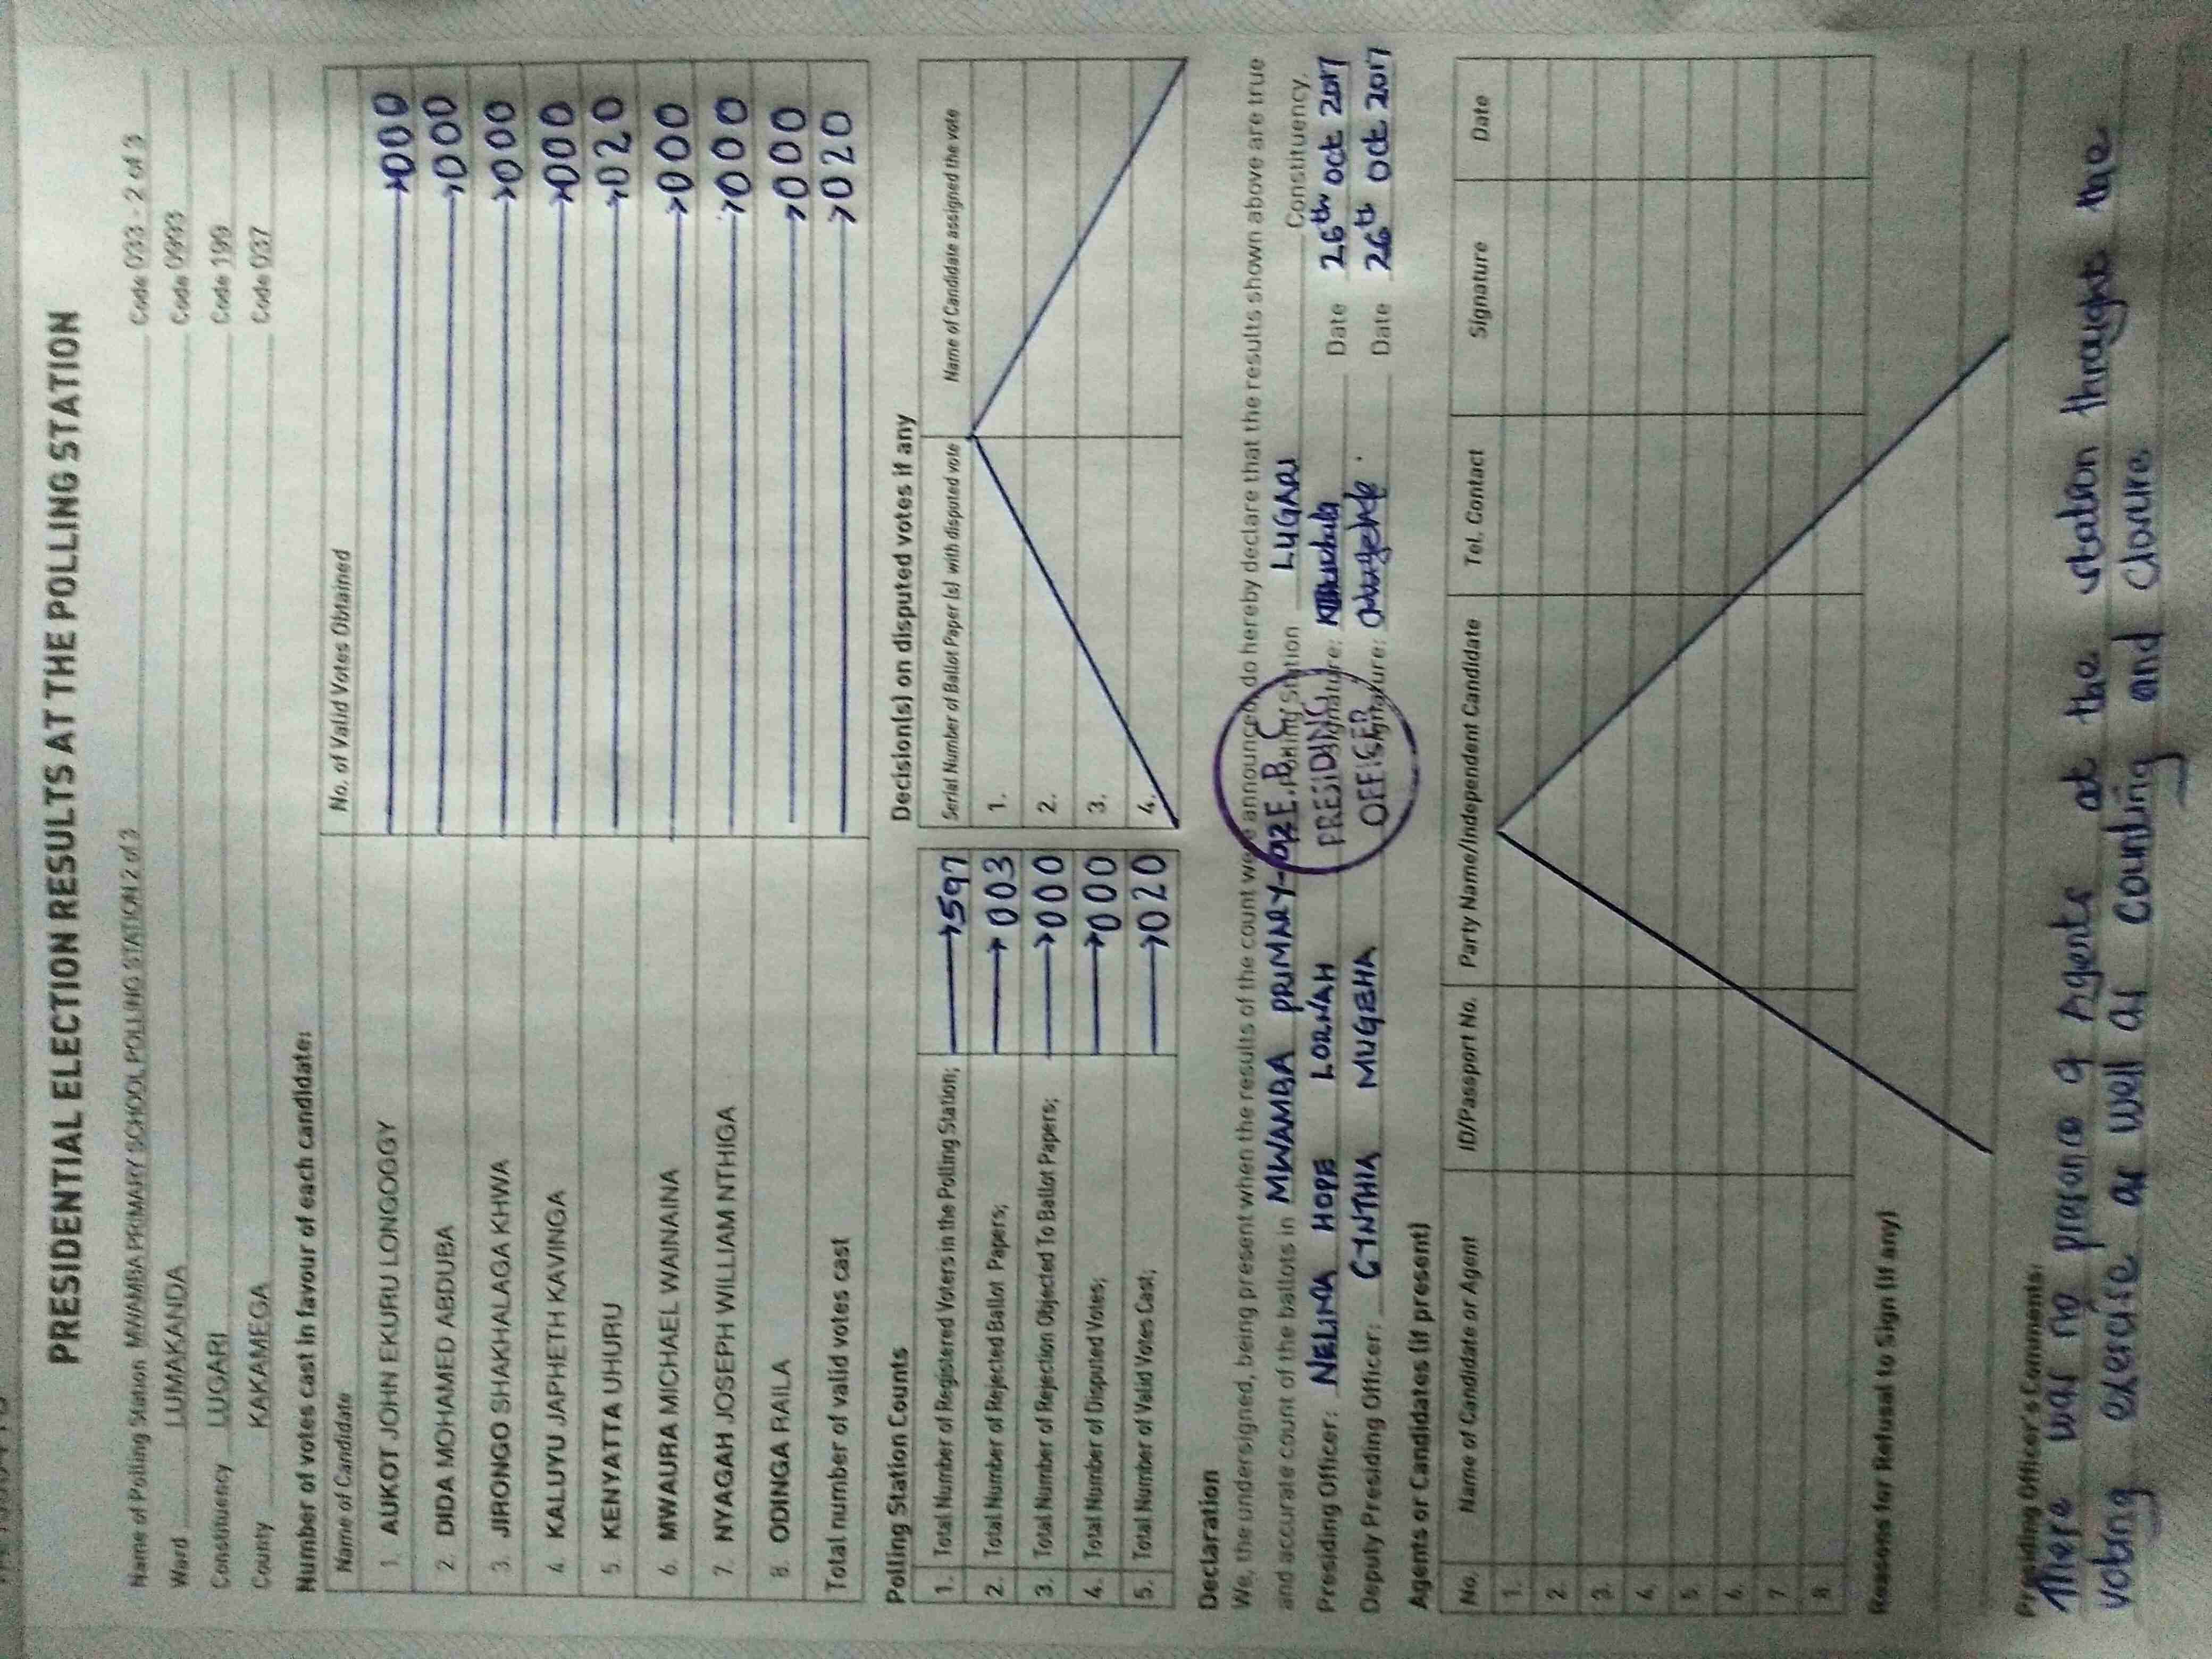 PRESIDENTIAL ELECTION RESULTS AT THE POLLING STATION
Name of Polling Station MWAMBA PRIMARY SCHOOL POLLING STATION 2 of 3 Code 033 - 2 of 3
Ward LUMAKANDA Code 0993
Constituency LUGARI Code 199
County KAKAMEGA Code 037
Number of votes cast in favour of each candidate:
Name of Candidate No. of Valid Votes Obtained
1. AUKOT JOHN EKURU LONGOGGY 000
2. DIDA MOHAMED ABDUBA 000
3. JIRONGO SHAKHALAGA KHWA 000
4. KALUYU JAPHETH KAVINGA 000
5. KENYATTA UHURU 020
6. MWAURA MICHAEL WAINAINA 000
7. NYAGAH JOSEPH WILLIAM NTHIGA 000
8. ODINGA RAILA 000
Total number of valid votes cast 020
Polling Station Counts
1. Total Number of Registered Voters in the Polling Station; 597
2. Total Number of Rejected Ballot Papers; 003
3. Total Number of Rejection Objected To Ballot Papers; 000
4. Total Number of Disputed Votes; 000
5. Total Number of Valid Votes Cast; 020
Decision(s) on disputed votes if any
Serial Number of Ballot Paper (s) with disputed vote Name of Candidate assigned the vote
1.
2.
3.
4.
Declaration
We, the undersigned, being present when the results of the count were announced, do hereby declare that the results shown above are true
and accurate count of the ballots in MWAMBA PRIMARY Polling Station LUGARI Constituency.
Presiding Officer: NELIMA HOPE LORNAH Signature: Date 26th oct 2017
Deputy Presiding Officer: CYNTHIA MUGEHA Signature: Date 26th oct 2017
PRESIDING
OFFICER
Agents or Candidates (if present)
No. Name of Candidate or Agent ID/Passport No. Party Name/Independent Candidate Tel. Contact Signature Date
1.
2.
3.
4.
5.
6.
7.
8.
Reasons for Refusal to Sign (if any)
Presiding Officer's Comments:
There was no presence of Agents at the station throught the
voting exercise as well as counting and closure